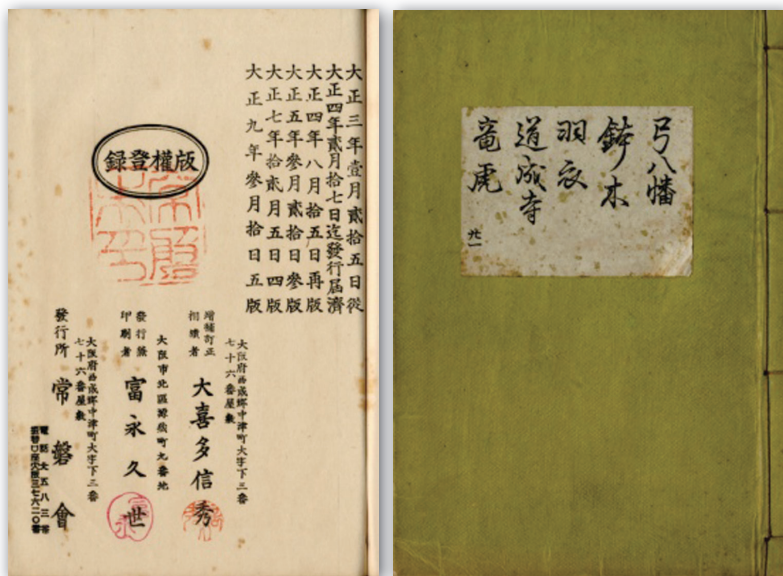 大正三年壹月貳拾五日從
大正四年貳月拾七日迄發行届濟
大正四年八月拾五日再版
大正五年參月貳拾日參版
大正七年拾貳月五日四版
大正九年參月拾日五版
版權登録
大阪府西成郡中津町大字下三番
七十六番屋敷
增補訂正
相續者
大喜多信秀
大阪市北區源蔵町九番地
發行兼
印刷者
富永久世
大阪府西成郡中津町大字下三番
七十六番屋敷
發行所 常磐會
弓八幡
鉢木
羽衣
道成寺
竜虎